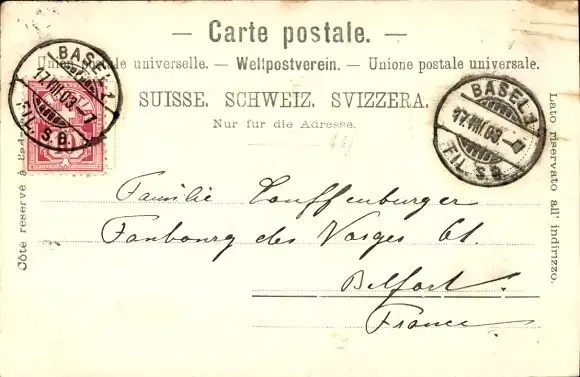 — Carte postale. —
Union postale universelle. — Weltpostverein. — Unione postale universale.
SUISSE. SCHWEIZ. SVIZZERA.
Nur für die Adresse.
Côté réservé à l'adr
Lato riservato all' indirizzo.
BASEL 1
17.VIII.03. – 7
FIL. S.B.
10
BASEL 1
17.VIII.03. – 7
FIL. S.B.
Familie Lauffenburger
Faubourg des Vosges 61.
Belfort.
France.